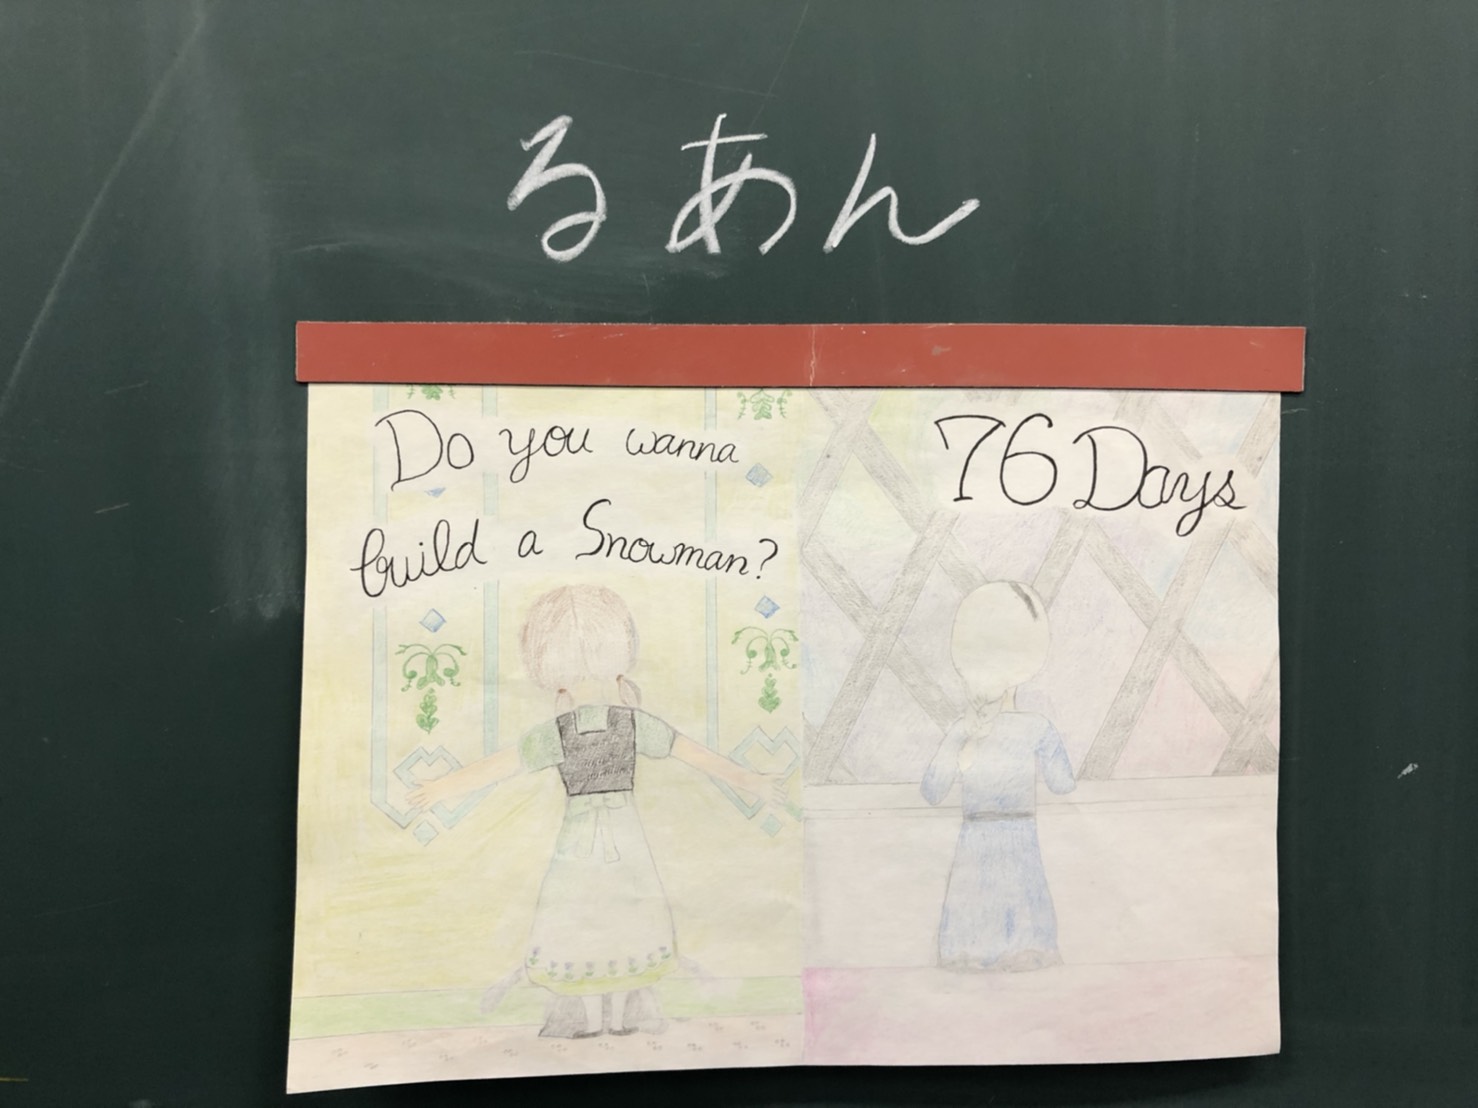 るあん
Do you wanna
build a Snowman?
76 Days